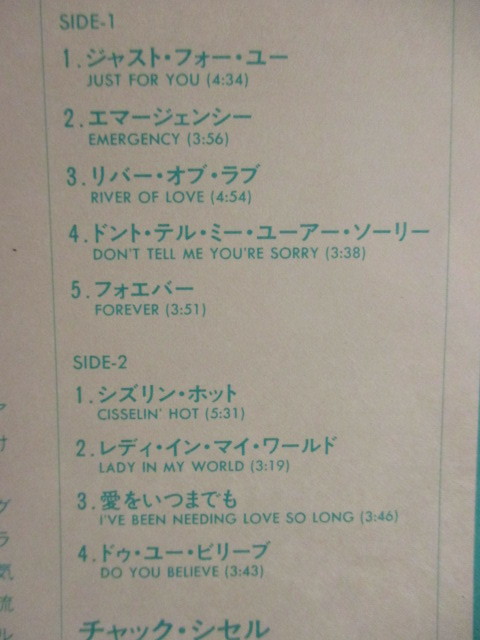 SIDE-1
1.ジャスト・フォー・ユー
JUST FOR YOU (4:34)
2.エマージェンシー
EMERGENCY (3:56)
3.リバー・オブ・ラブ
RIVER OF LOVE (4:54)
4.ドント・テル・ミー・ユーアー・ソーリー
DON'T TELL ME YOU'RE SORRY (3:38)
5.フォエバー
FOREVER (3:51)
SIDE-2
1.シズリン・ホット
CISSELIN' HOT (5:31)
2.レディ・イン・マイ・ワールド
LADY IN MY WORLD (3:19)
3.愛をいつまでも
I'VE BEEN NEEDING LOVE SO LONG (3:46)
4.ドゥ・ユー・ビリーブ
DO YOU BELIEVE (3:43)
チャック・シセル